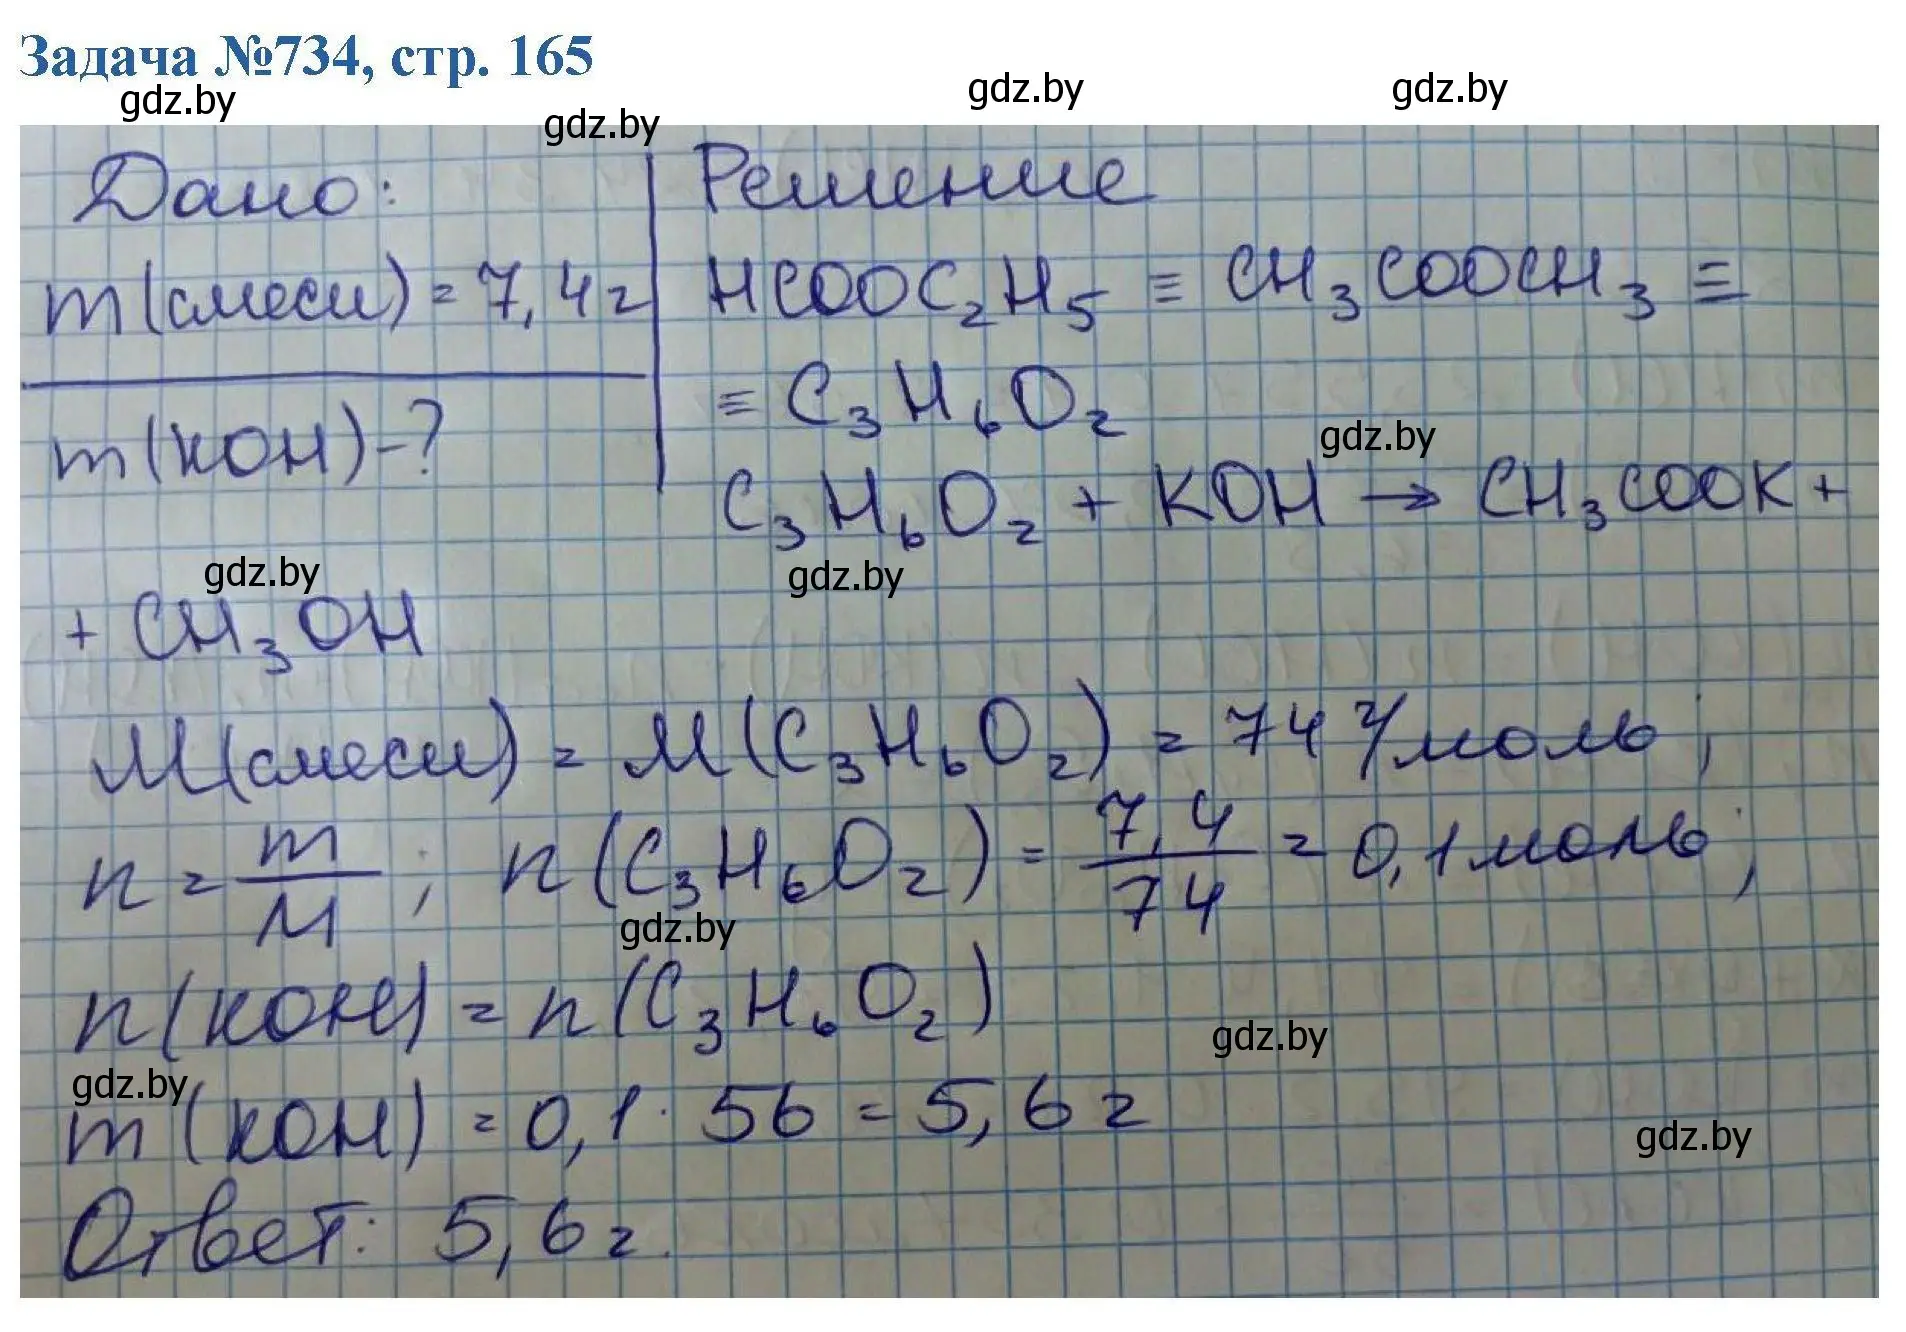 Задача №734, стр. 165
gdz.by
gdz.by
gdz.by
gdz.by
Дано:
m(смеси) = 7,4 г
m(KOH) - ?
Решение
HCOOC₂H₅ ≡ CH₃COOCH₃ ≡
≡ C₃H₆O₂
gdz.by
C₃H₆O₂ + KOH → CH₃COOK +
gdz.by
gdz.by
+ CH₃OH
M(смеси) = M(C₃H₆O₂) = 74 г/моль;
n = m/M; n(C₃H₆O₂) = 7,4/74 = 0,1 моль;
gdz.by
n(KOH) = n(C₃H₆O₂)
gdz.by
gdz.by
m(KOH) = 0,1 · 56 = 5,6 г
gdz.by
Ответ: 5,6 г.